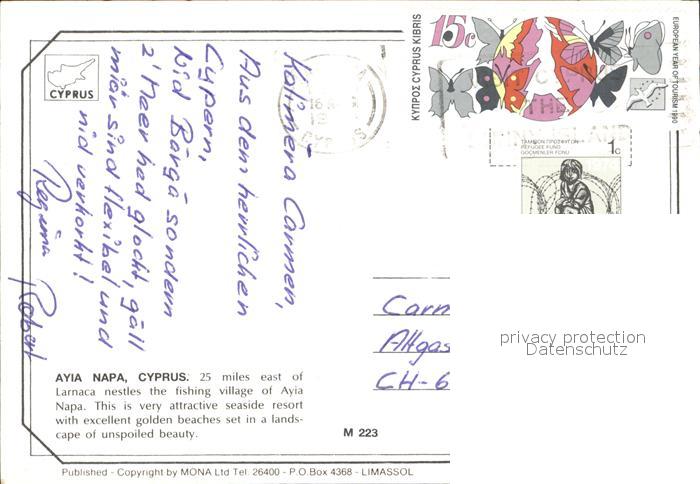 CYPRUS
Kaliméra Carmen,
Aus dem herrlichen
Cypern,
Nid Bärgä sondern
z' Meer hed glockt, gäll
miär sind flexibel und
nid verkorkt!
Regina Robert
15c
ΚΥΠΡΟΣ CYPRUS KIBRIS
EUROPEAN YEAR OF TOURISM 1990
1c
ΤΑΜΕΙΟΝ ΠΡΟΣΦΥΓΩΝ
REFUGEE FUND
GÖÇMENLER FONU
CYPRUS
Carm
Altgas
CH-6
privacy protection
Datenschutz
AYIA NAPA, CYPRUS. 25 miles east of
Larnaca nestles the fishing village of Ayia
Napa. This is very attractive seaside resort
with excellent golden beaches set in a lands-
cape of unspoiled beauty.
M 223
Published - Copyright by MONA Ltd Tel. 26400 - P.O.Box 4368 - LIMASSOL